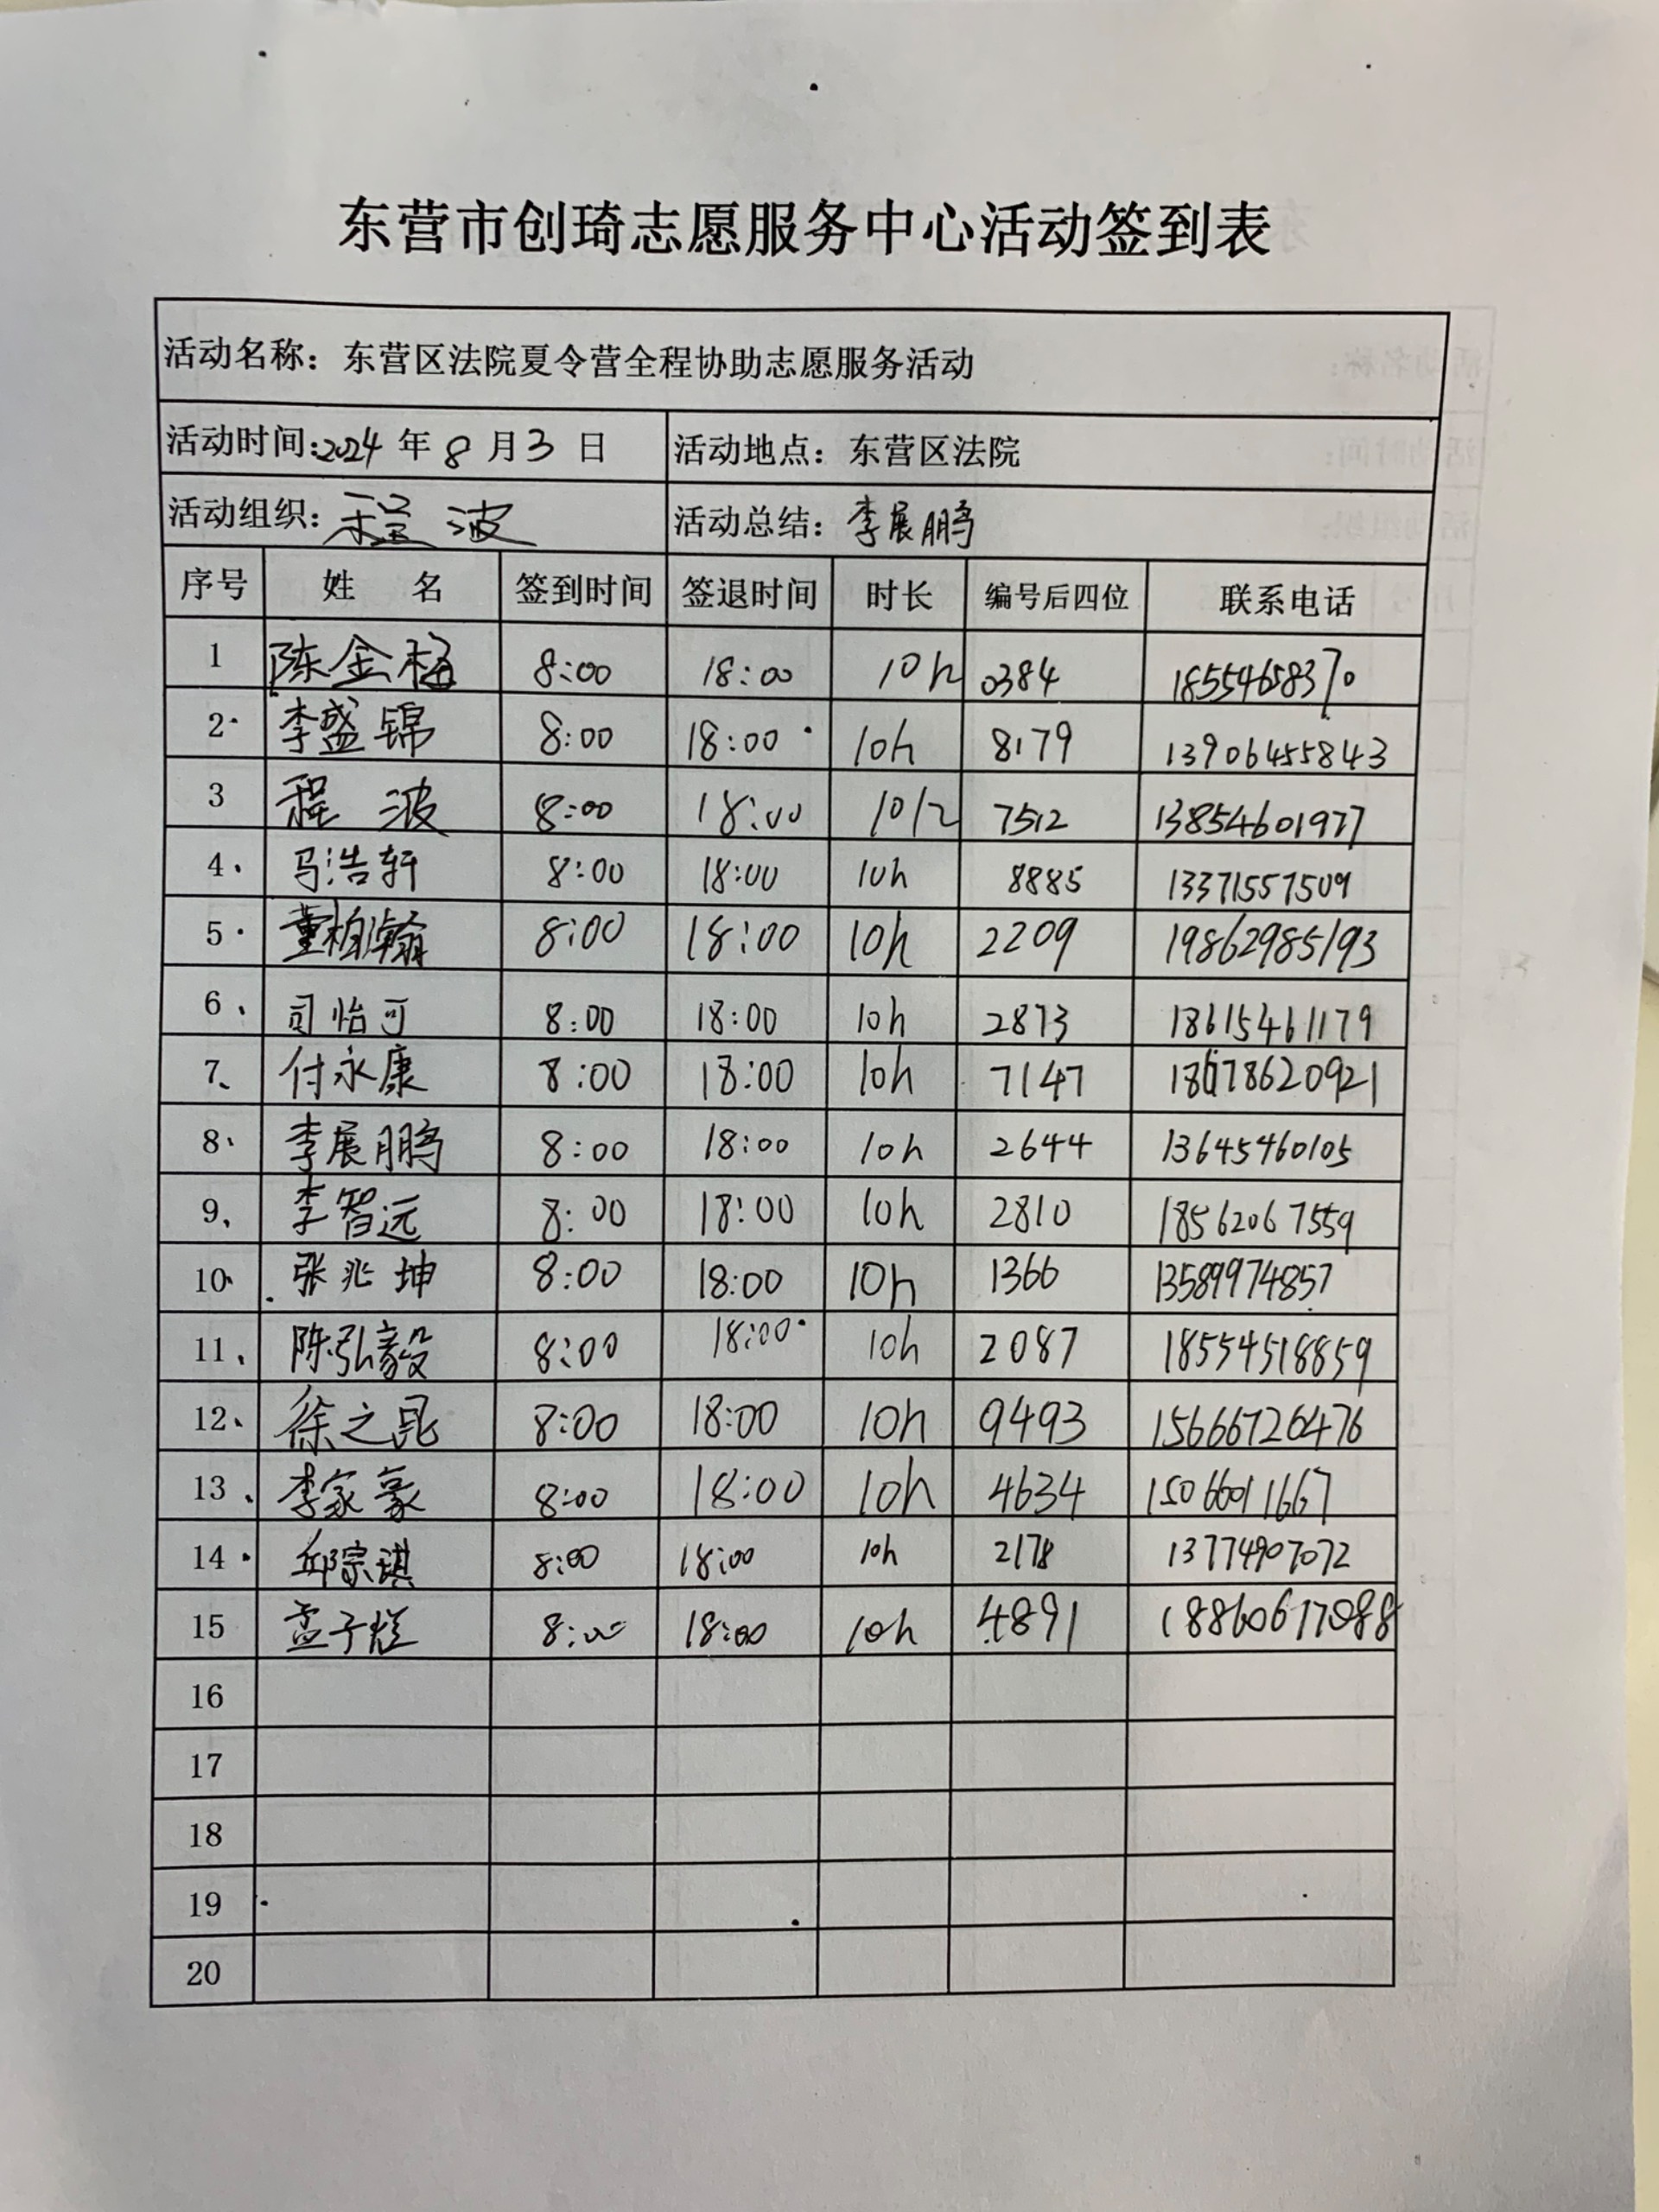 东营市创琦志愿服务中心活动签到表
活动名称：东营区法院夏令营全程协助志愿服务活动
活动时间:2024 年 8 月 3 日 活动地点：东营区法院
活动组织：程 波 活动总结：李展鹏
序号 姓 名 签到时间 签退时间 时长 编号后四位 联系电话
1 陈金梅 8:00 18:00 10h 0384 18554658370
2 李盛锦 8:00 18:00 10h 8179 13906455843
3 程 波 8:00 18:00 10h 7512 13854601977
4、 马浩轩 8:00 18:00 10h 8885 13371557509
5 董柏瀚 8:00 18:00 10h 2209 19862985193
6、 司怡可 8:00 18:00 10h 2873 18615461179
7、 付永康 8:00 18:00 10h 7147 18678620921
8、 李展鹏 8:00 18:00 10h 2644 13645460105
9、 李智远 8:00 18:00 10h 2810 18562067559
10、 张兆坤 8:00 18:00 10h 1366 13589974857
11、 陈弘毅 8:00 18:00 10h 2087 18554518859
12、 徐之昆 8:00 18:00 10h 9493 15666726476
13、 李家豪 8:00 18:00 10h 4634 15066011667
14 邱宗琪 8:00 18:00 10h 2178 13774907072
15 孟子煊 8:00 18:00 10h 4891 18860617088
16
17
18
19
20